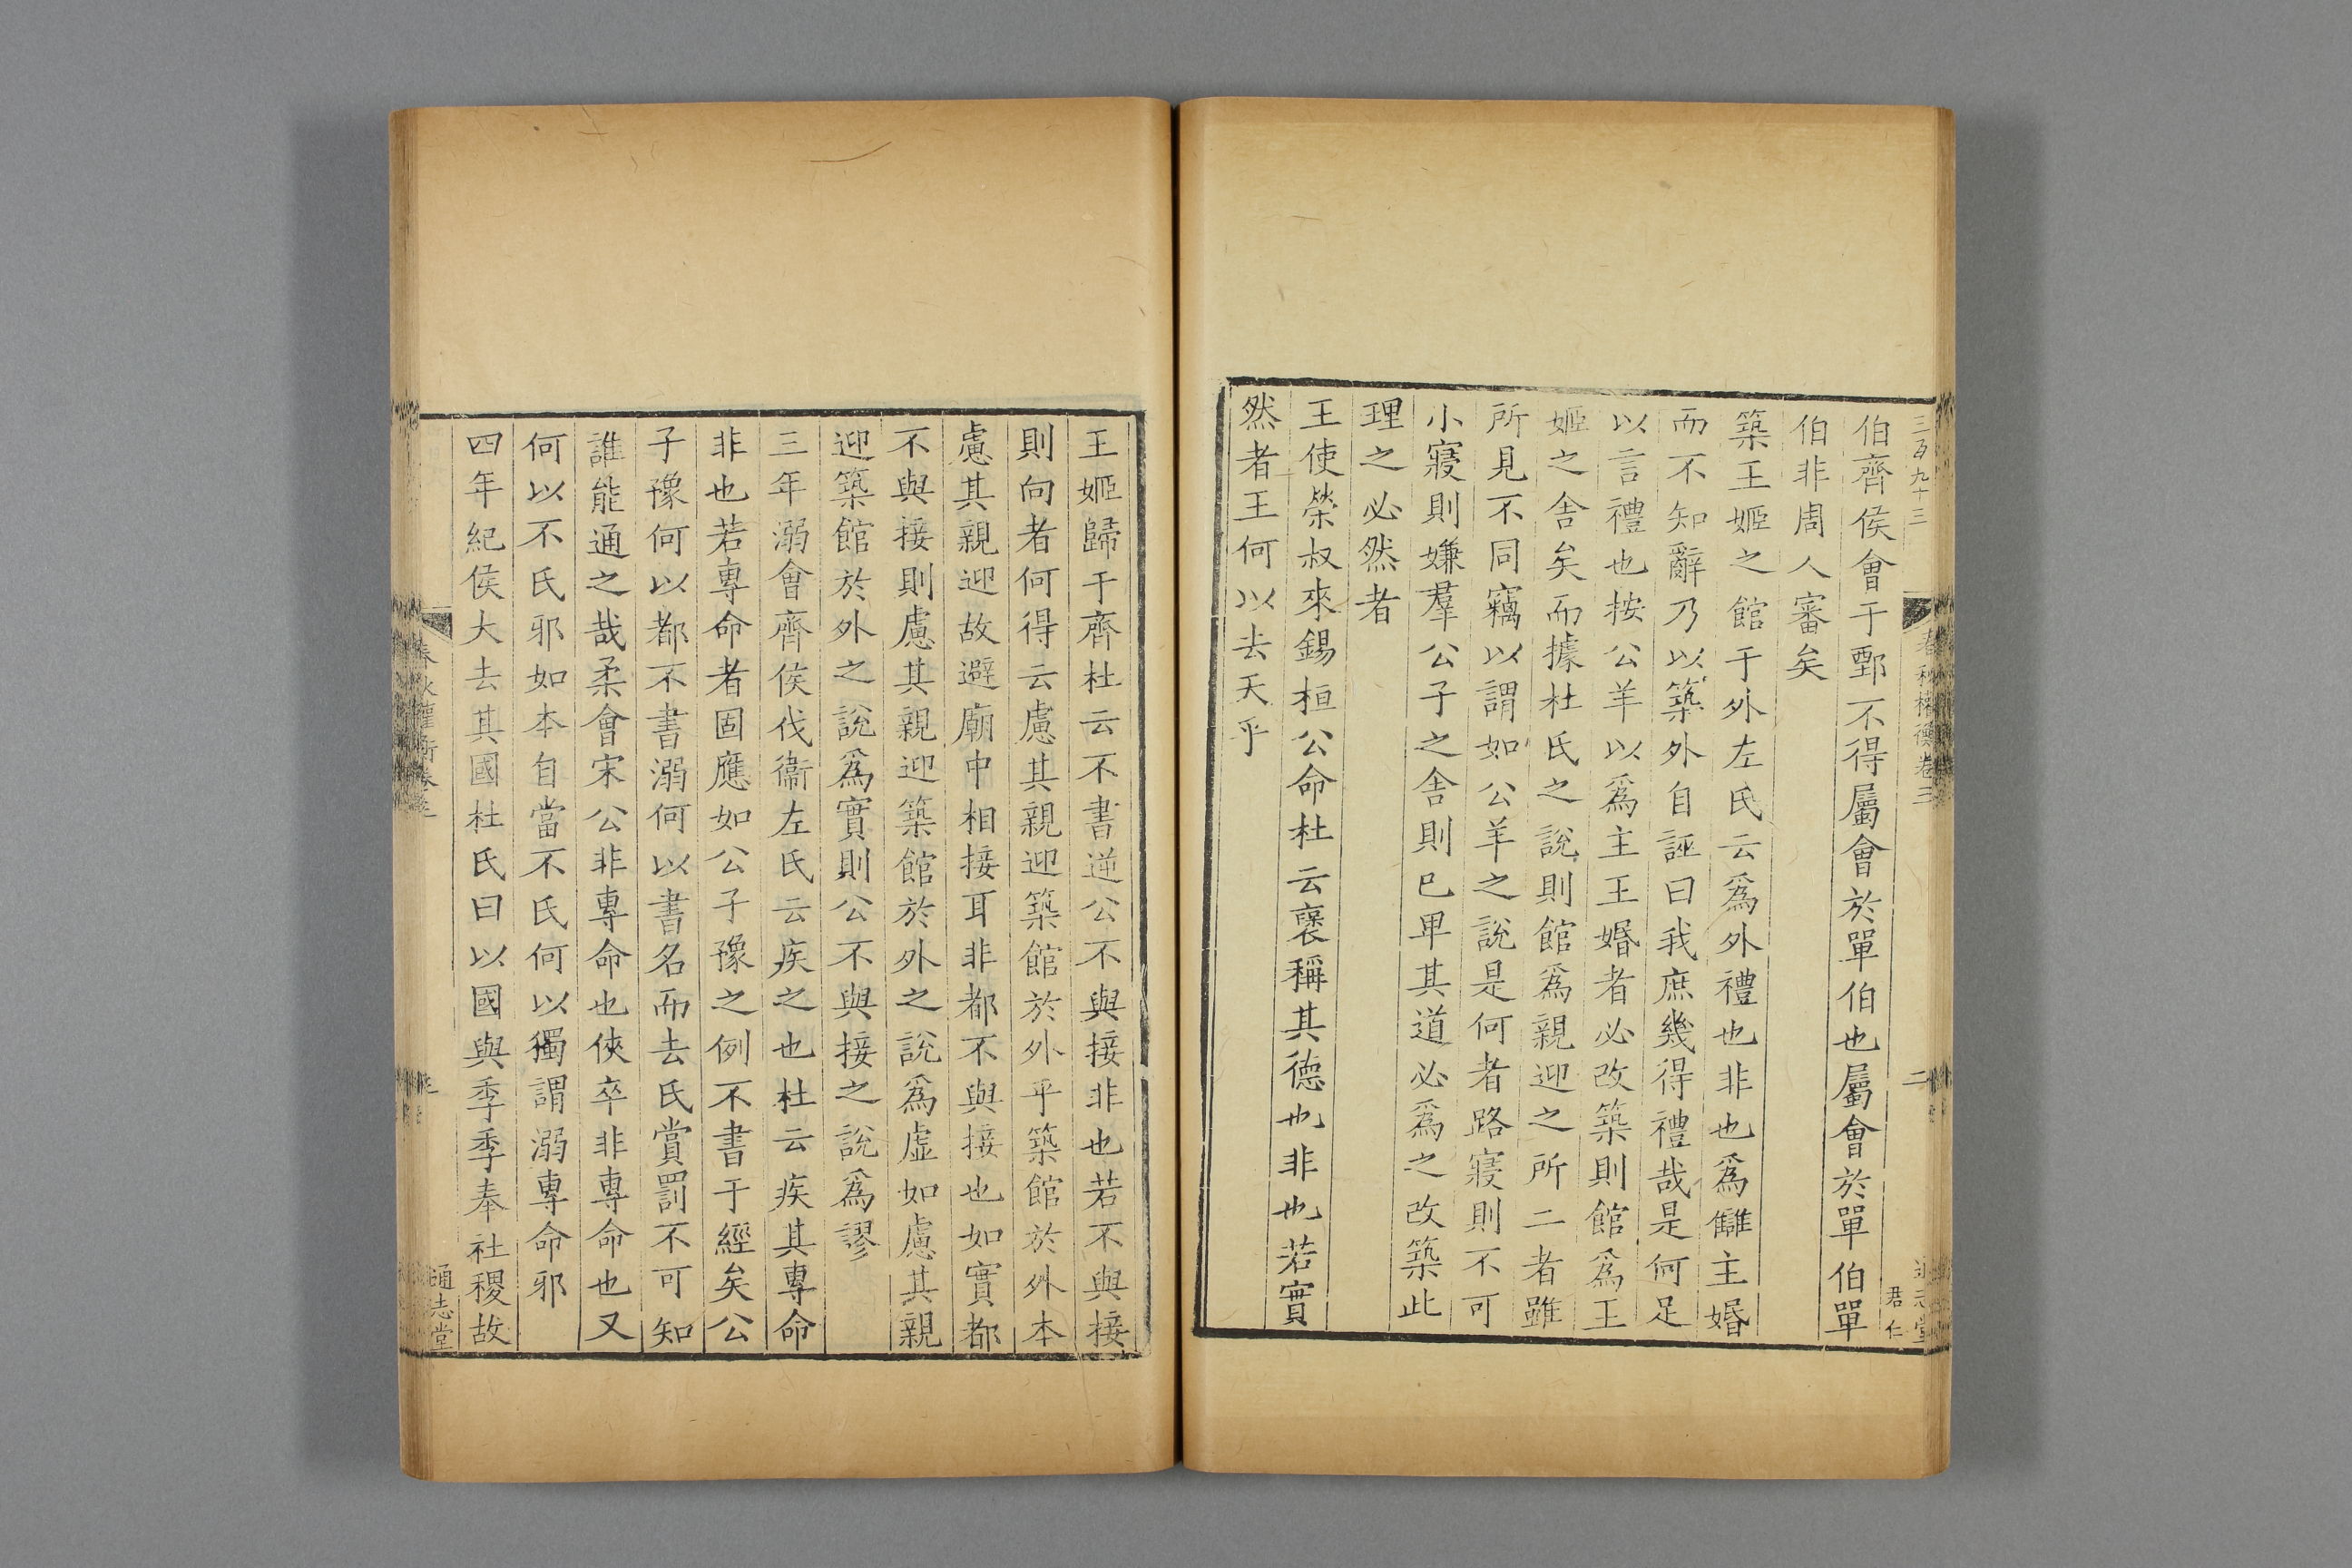 三百九十三
春秋權衡卷三
二
通志堂
君仁
伯齊侯會于鄄不得屬會於單伯也屬會於單伯單
伯非周人審矣
築王姬之館于外左氏云爲外禮也非也爲讎主婚
而不知辭乃以築外自誣曰我庶幾得禮哉是何足
以言禮也按公羊以爲主王婚者必改築則館爲王
姬之舍矣而據杜氏之說則館爲親迎之所二者雖
所見不同竊以謂如公羊之說是何者路寢則不可
小寢則嫌羣公子之舍則已卑其道必爲之改築此
理之必然者
王使榮叔來錫桓公命杜云襃稱其德也非也若實
然者王何以去天乎
王姬歸于齊杜云不書逆公不與接非也若不與接
則向者何得云慮其親迎築館於外乎築館於外本
慮其親迎故避廟中相接耳非都不與接也如實都
不與接則慮其親迎築館於外之說爲虛如慮其親
迎築館於外之說爲實則公不與接之說爲謬
三年溺會齊侯伐衞左氏云疾之也杜云疾其專命
非也若專命者固應如公子豫之例不書于經矣公
子豫何以都不書溺何以書名而去氏賞罰不可知
誰能通之哉柔會宋公非專命也俠卒非專命也又
何以不氏邪如本自當不氏何以獨謂溺專命邪
四年紀侯大去其國杜氏曰以國與季季奉社稷故
春秋權衡卷三
三
通志堂